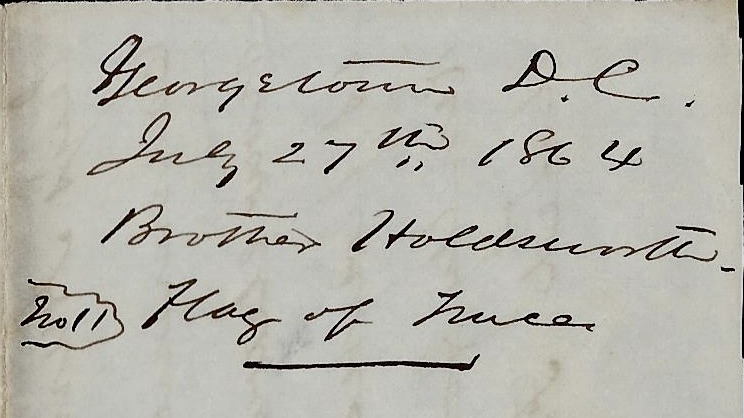 Georgetown D.C.
July 27th 1864
Brother Holdsworth-
No 11 Flag of Truce.